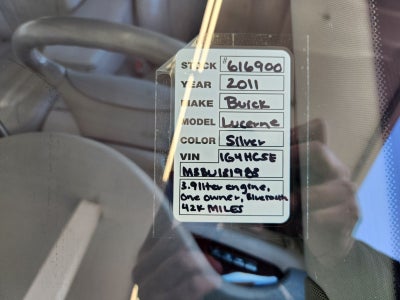 STOCK #616900
YEAR 2011
MAKE Buick
MODEL Lucerne
COLOR Silver
VIN 1G4HC5E
M8BU181985
3.9 liter engine,
one owner, Bluetooth
42K MILES